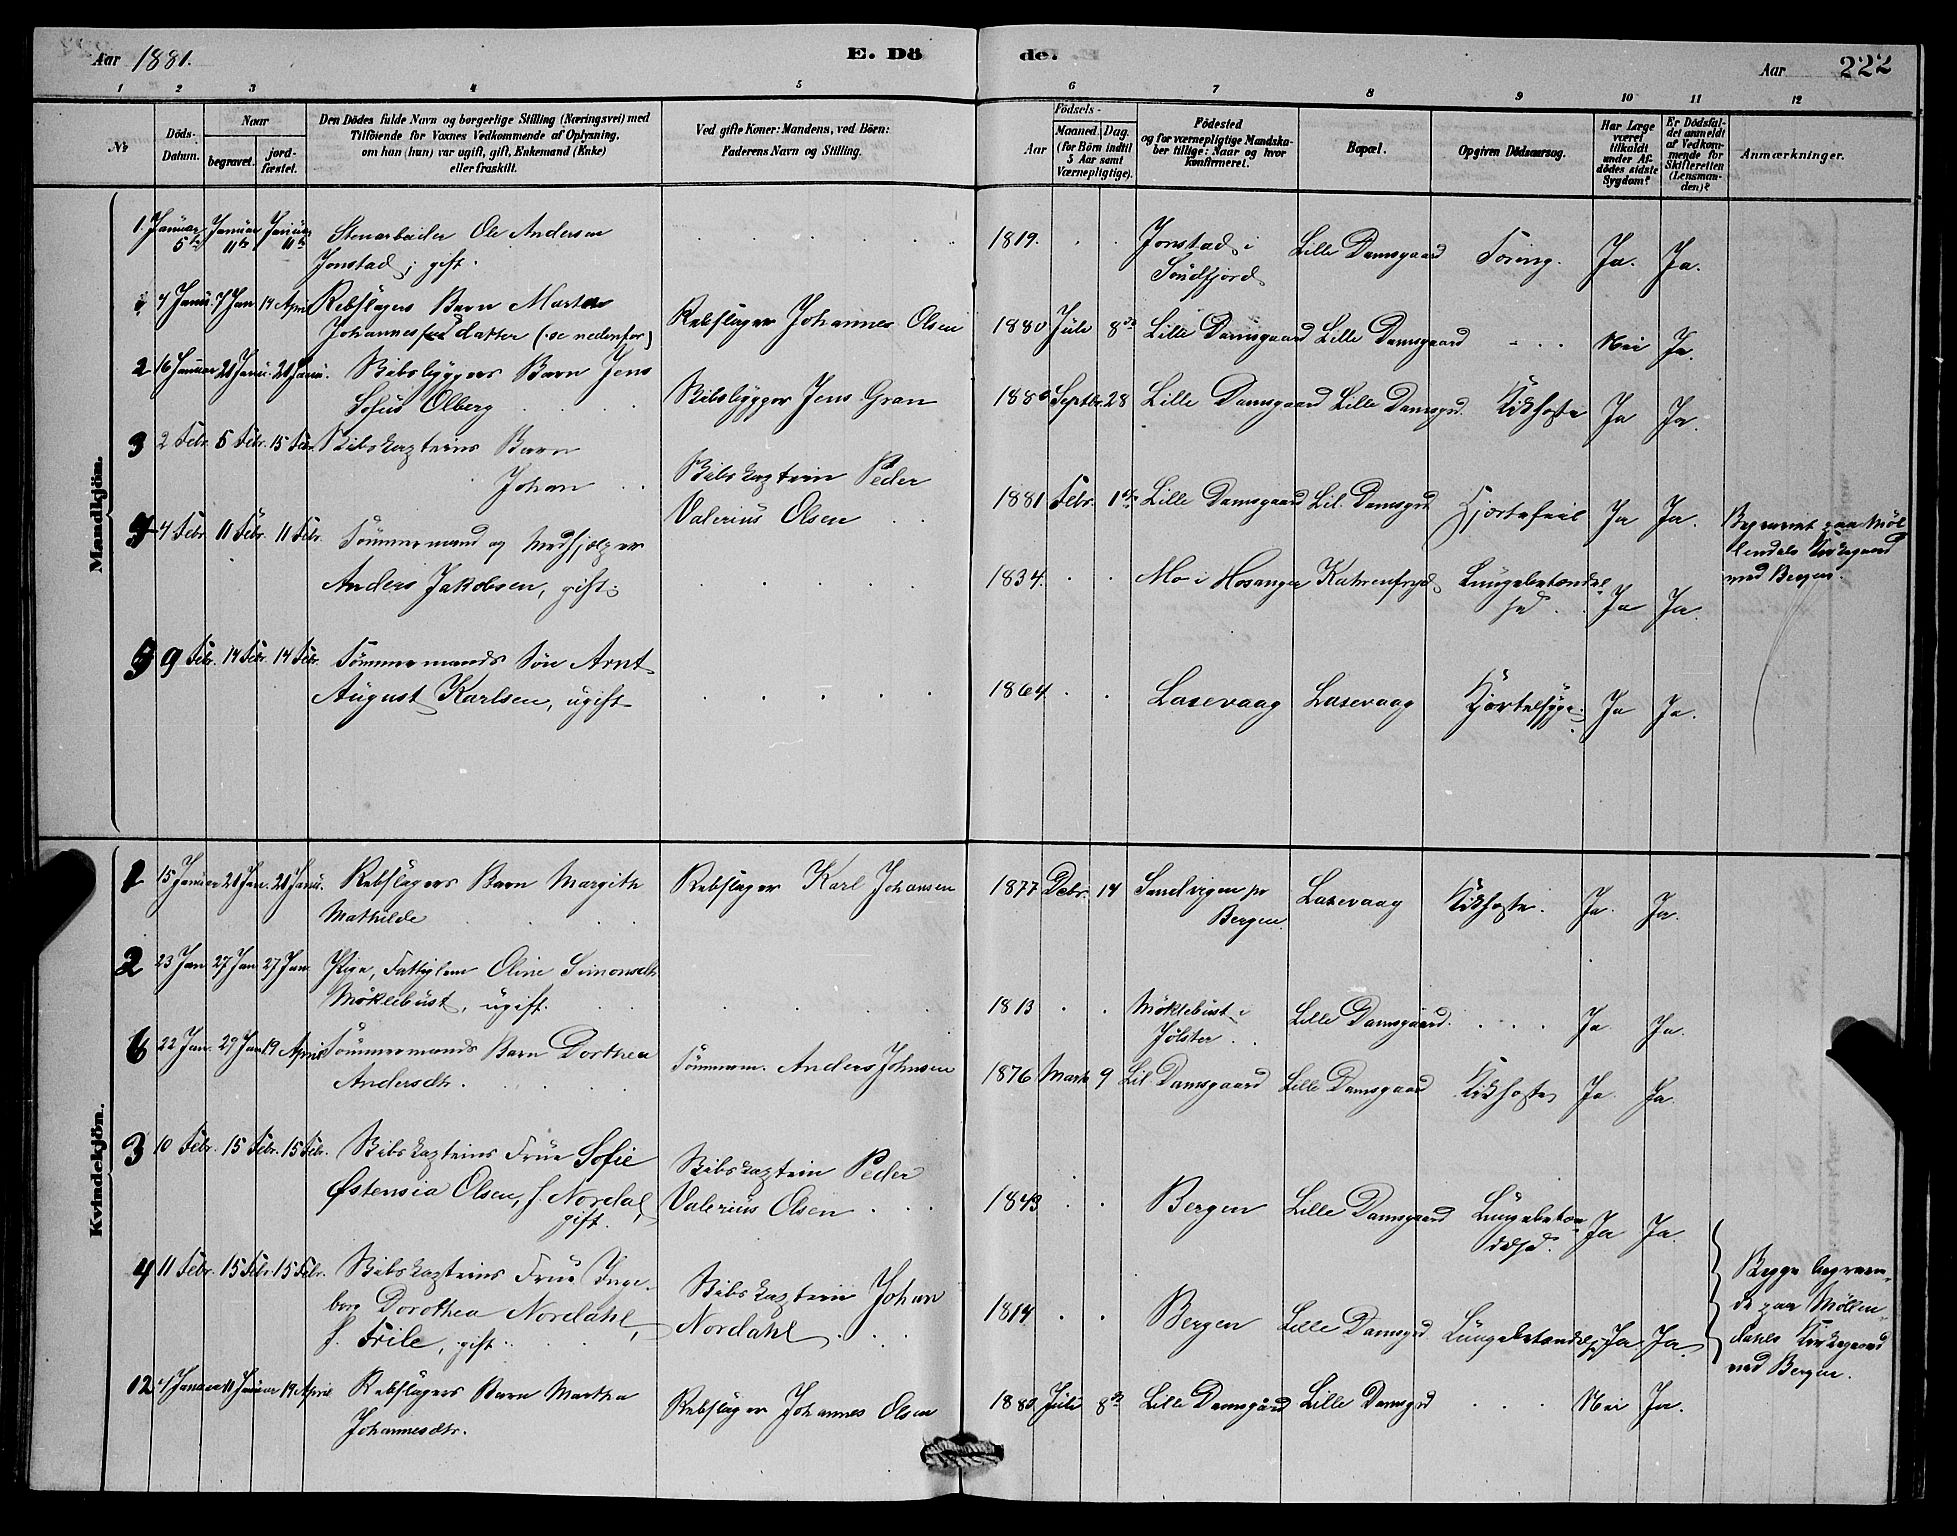 Aar 1881.
E. Döde.
Aar 222
1 2 3 4 5 6 7 8 9 10 11 12
No
Döds-Datum.
Naar
begravet.
jord-fæstet.
Den Dödes fulde Navn og borgerlige Stilling (Næringsvei) med
Tilföiende for Voxnes Vedkommende af Oplysning,
om han (hun) var ugift, gift, Enkemand (Enke)
eller fraskilt.
Ved gifte Koner: Mandens, ved Börn:
Faderens Navn og Stilling.
Födsels-
Aar
Maaned. Dag.
(for Börn indtil
5 Aar samt
Værnepligtige).
Födested
og for værnepligtige Mandska-
ber tillige: Naar og hvor
konfirmeret.
Bopæl.
Opgiven Dödsaarsag.
Har Læge
været
tilkaldt
under Af-
dödes sidste
Sygdom?
Er Dödsfal-
det anmeldt
af Vedkom-
mende for
Skifteretten
(Lensman-
den)?
Anmærkninger.
Mandkjön.
1. Januar 5te Januar 11te Januar 11te Stenarbeider Ole Andersen
Jonstad; gift. 1819. Jonstad i
Söndfjord Lille Damsgaard Tæring. Ja. Ja.
4 Janu. 7 Jan 19 April Rebslagers Barn Marta
Johannesdatter (se nedenfor) Rebslager Johannes Olsen 1880 Juli 8de Lille Damsgaard Lille Damsgaard Nei Ja.
2 16 Januar 20 Janu. 20 Janu. Skibsbyggers Barn Jens
Sofus Olberg Skibsbygger Jens Gran 1880 Septbr. 28 Lille Damsgaard Lille Damsgrd. Kikhoste Ja Ja.
3 2 Febr. 5 Febr. 15 Febr. Skibskapteins Barn
Johan Skibskaptein Peder
Valerius Olsen 1881 Febr. 1ste Lille Damsgaard Lil. Damsgrd Hjertefeil Ja Ja.
4 4 Febr. 11 Febr. 11 Febr. Tömmermand og Medhjælper
Anders Jakobsen, gift; 1834. Mo i Hosanger Kahrenfryd Lungebetændel-
sed. Ja Ja.
Begravet paa Möl
lendals Kirkegaard
ved Bergen.
5 9 Febr. 14 Febr. 14 Febr. Tömmermands Sön Arnt
August Karlsen, ugift 1864. Laxevaag Laxevaag Kjertelsyge. Ja Ja.
Kvindekjön.
1 15 Januar 20 Jan. 20 Janu. Rebslagers Barn Margith
Mathilde Rebslager Karl Johansen 1877 Debr. 14 Sandvigen pr
Bergen. Laxevaag Kikhoste. Ja. Ja.
2 23 Jan 27 Jan 27 Jan Pige, Fattiglem Oline Simonsdtr
Möklebust, ugift. 1813 Möklebust i
Jölster Lille Damsgaard. Ja. Ja.
6 22 Jan. 29 Jan 19 April Tömmermands Barn Dorthea
Andersdtr. Tömmerm. Anders Johnsen 1876 Marts 9 Lil. Damsgaard Lille Damsgaard Kikhoste Ja. Ja.
3 10 Febr. 15 Febr. 15 Febr. Skibskapteins Frue Sofie
Østensia Olsen, f. Nordal,
gift. Skibskaptein Peder
Valerius Olsen 1843 Bergen Lille Damsgaard Lungebetæn
delse. Ja Ja.
4 11 Febr. 15 Febr. 15 Febr. Skibskapteins Frue Inge-
borg Dorothea Nordahl,
f. Friele, gift. Skibskaptein Johan
Nordahl 1814 Bergen Lille Damsgrd. Lungebetændelse Ja Ja.
Begge begraven-
de paa Möllen-
dals Kirkegaard
ved Bergen.
12 4 Januar 11 Januar 19 April Rebslagers Barn Martha
Johannesdtr. Rebslager Johannes Olsen 1880 Juli 8de Lille Damsgård Lille Damsgrd Nei Ja.